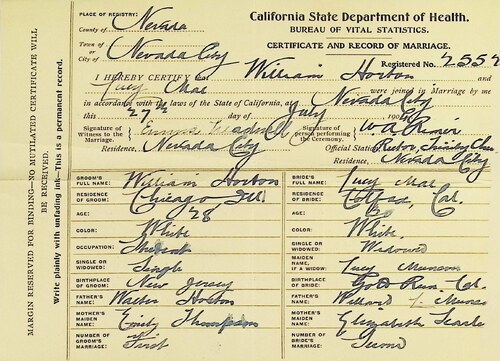 PLACE OF REGISTRY:
County of Nevada
Town of
or
City of Nevada City
California State Department of Health.
BUREAU OF VITAL STATISTICS.
CERTIFICATE AND RECORD OF MARRIAGE.
Registered No. 2552
I HEREBY CERTIFY William Horton and
Lucy Mae were joined in Marriage by me
in accordance with the laws of the State of California, at Nevada City
this 27th day of July 190
Signature of Witness to the Marriage, Emma
Signature of person performing the Ceremony, W.A. Rimer
Residence, Nevada City
Official Station, Rector, Trinity Church
Residence, Nevada City
MARGIN RESERVED FOR BINDING—NO MUTILATED CERTIFICATE WILL
BE RECEIVED.
Write plainly with unfading ink—This is a permanent record.
GROOM'S FULL NAME: William Horton
RESIDENCE OF GROOM: Chicago Ill
AGE: 28
COLOR: White
OCCUPATION: Student
SINGLE OR WIDOWED: Single
BIRTHPLACE OF GROOM: New Jersey
FATHER'S NAME: Walter Horton
MOTHER'S MAIDEN NAME: Emily Thompson
NUMBER OF GROOM'S MARRIAGE: First
BRIDE'S FULL NAME: Lucy Mae
RESIDENCE OF BRIDE: Colfax, Cal.
AGE:
COLOR: White
SINGLE OR WIDOWED: Widowed
MAIDEN NAME, IF A WIDOW: Lucy Munson
BIRTHPLACE OF BRIDE: Gold Run, Cal.
FATHER'S NAME: Willard Munson
MOTHER'S MAIDEN NAME: Elizabeth Searle
NUMBER OF BRIDE'S MARRIAGE: Second